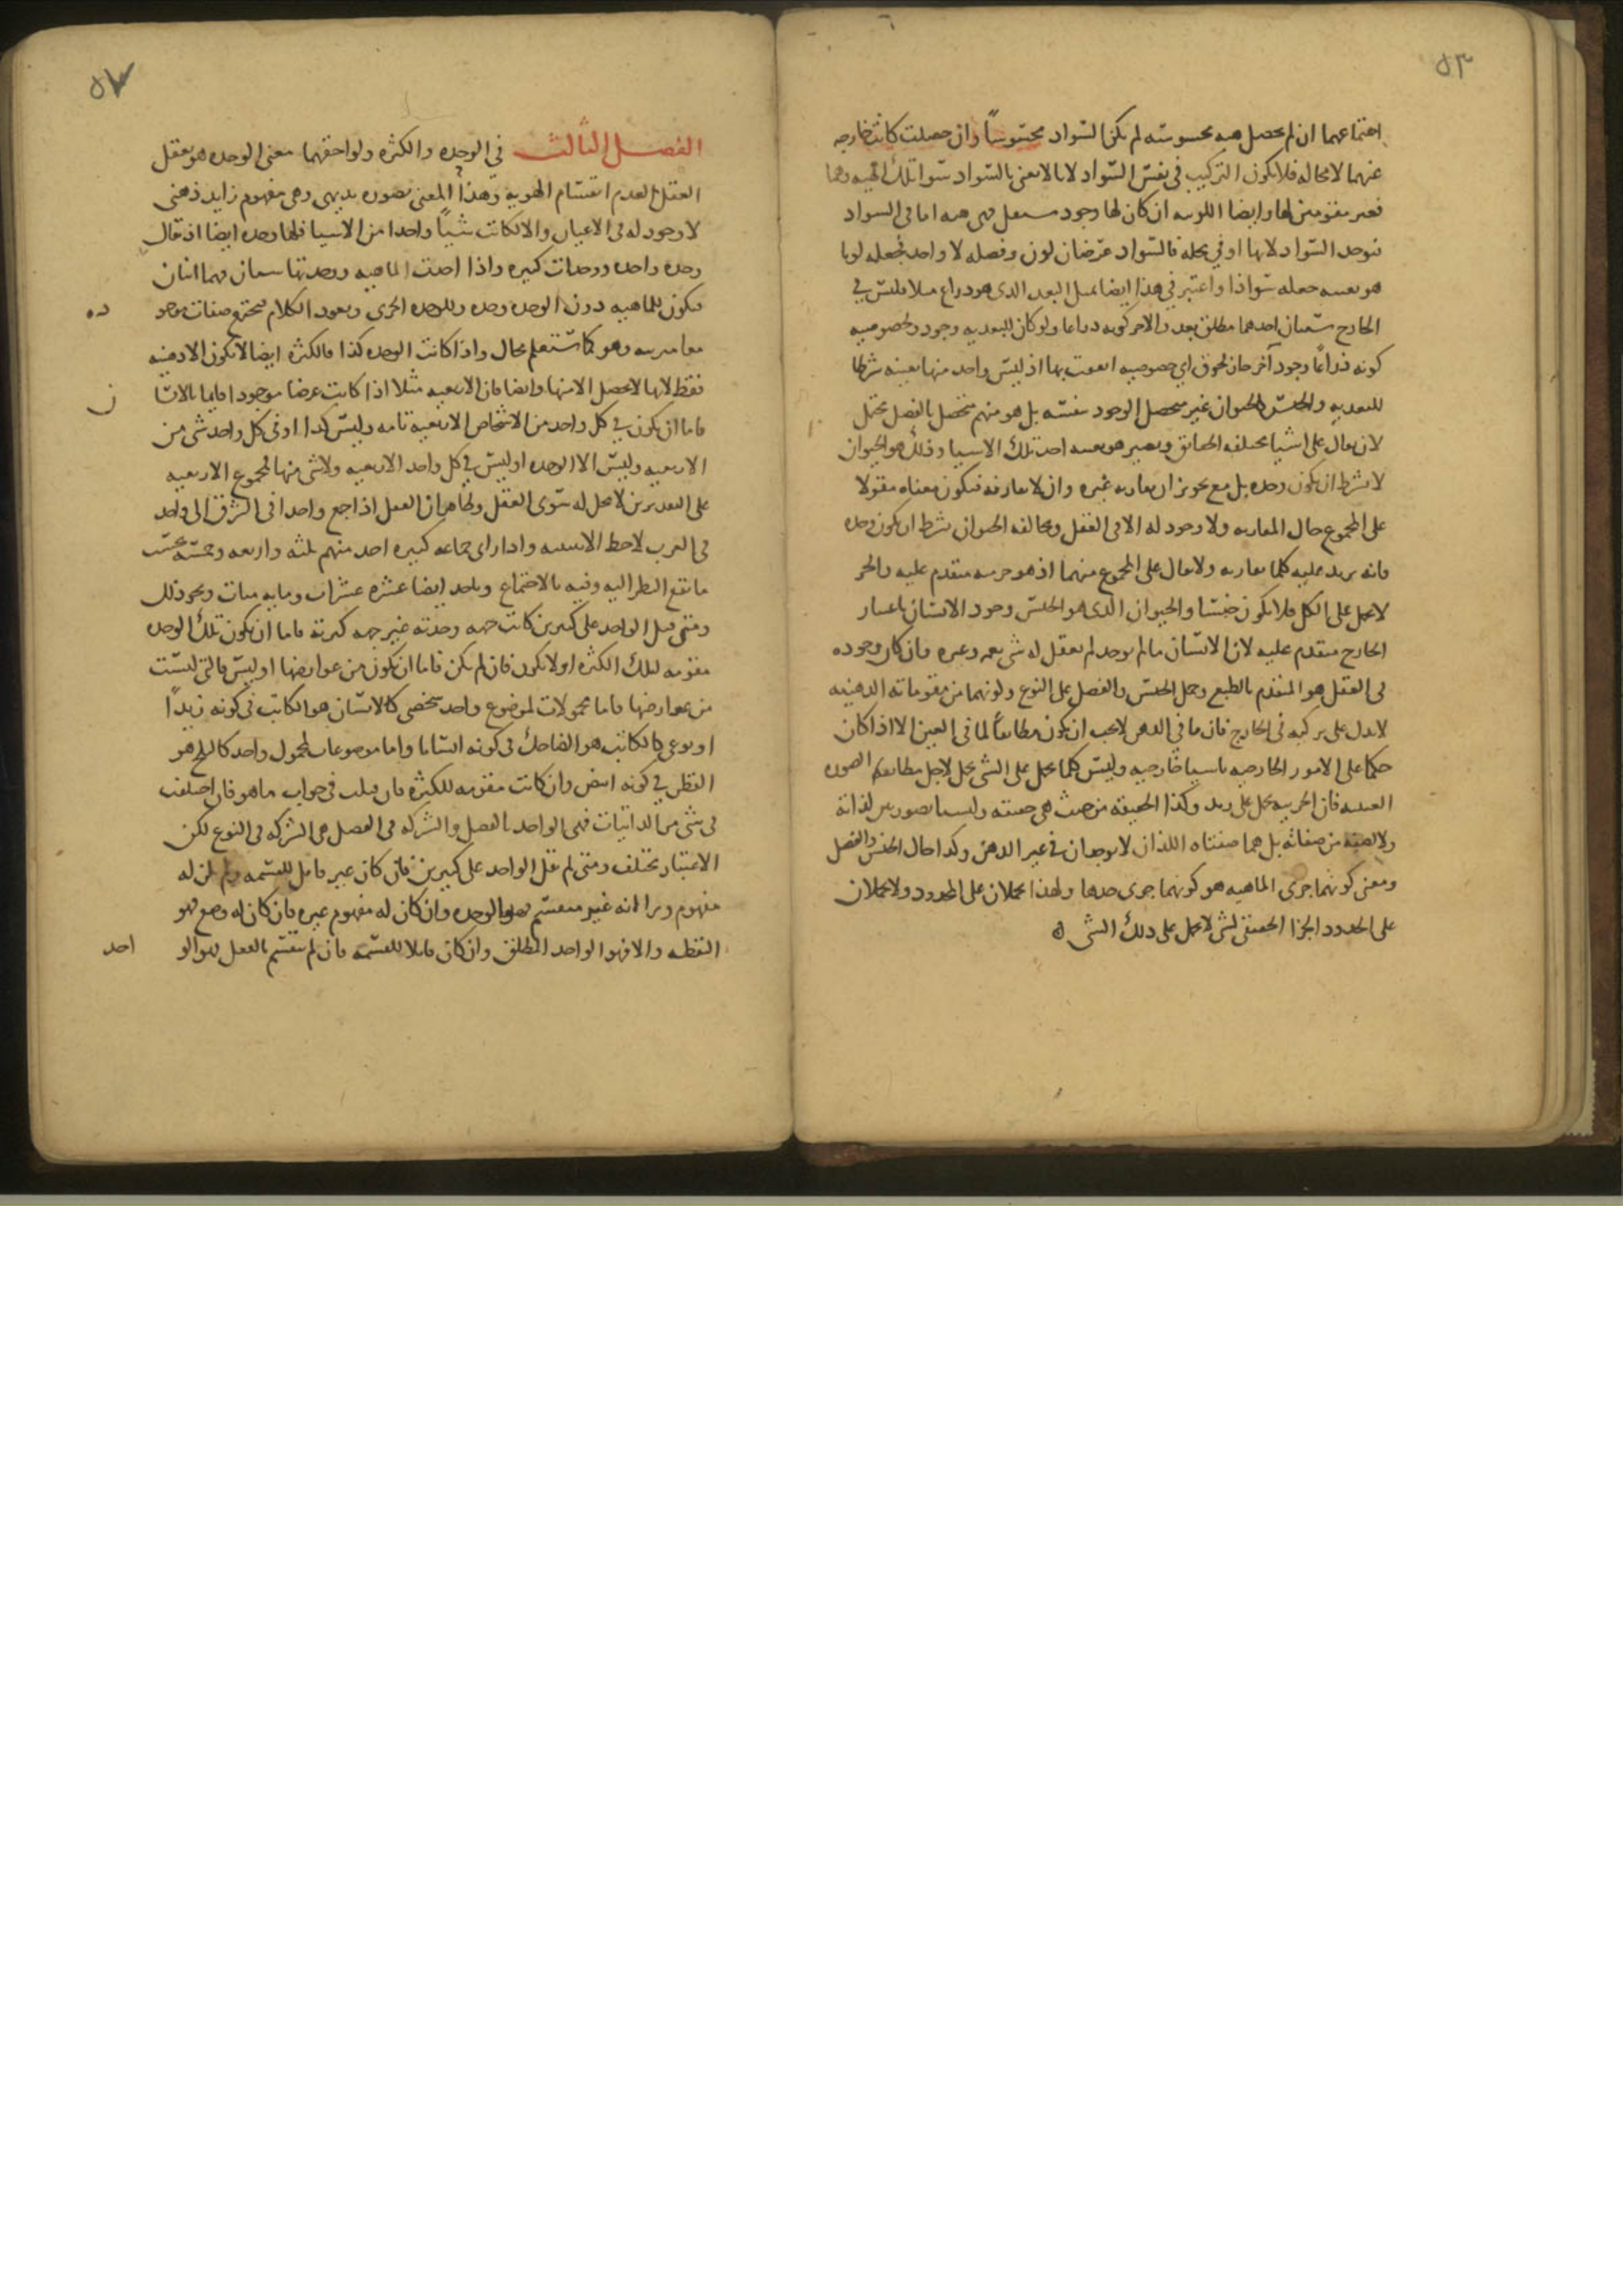 ٥٣
اجتماعهما ان لم يحصل هيه محسوسه لم يكن السواد محسوسا وان حصلت كانت خارجه
عنهما لا محاله فلا يكون التركيب في نفس السواد لانا لا نعنى بالسواد سوا تلك الهيه وهما
فغير مقومين لها وايضا اللونيه ان كان لها وجود مستقل فهى هيه اما فى السواد
فيوجد السواد لا بها او في محله فالسواد عرضان لون وفصله لا واحد فجعله لونا
هو بعينه جعله سوادا واعتبر في هذا ايضا بمثل البعد الذى هو ذراع مثلا فليس في
الخارج شيئان احدهما مطلق بعد والاخر كونه ذراعا ولو كان للبعديه وجود ولخصوصيه
كونه ذراعا وجود آخر جاز لحوق اي خصوصيه اتفقت بها اذ ليس واحد منها بعينه شرطا
للبعديه والجنس كالحيوان غير متحصل الوجود بنفسه بل هو مبهم متحصل بالفصل محتمل
لان يقال على اشيا مختلفه الحقائق ويصير هو بعينه احد تلك الاشيا وذلك هو الحيوان
لا بشرط ان يكون وحده بل مع تجويز ان يقارنه غيره وان لا يقارنه فيكون معناه مقولا
على المجموع حال المقارنه ولا وجود له الا فى العقل ومخالفه الحيوان بشرط ان يكون وحده
فانه يزيد عليه كلما يقارنه ولا يقال على المجموع منهما اذ هو جزيه متقدم عليه والجز
لا يحمل على الكل فلا يكون جنسا والحيوان الذى هو الجنس وجود الانسان باعتبار
الخارج متقدم عليه لان الانسان ما لم يوجد لم يعقل له شى يعمه وغيره وان كان وجوده
فى العقل هو المتقدم بالطبع وحمل الجنس والفصل على النوع وكونهما من مقوماته الذهنيه
لا يدل على تركيبه فى الخارج فان ما فى الذهن لا يجب ان يكون مطابقا لما فى العين الا اذا كان
حكما على الامور الخارجيه باشيا خارجيه وليس كلما يحمل على الشى يحمل لاجل مطابقه الصوره
العينيه فان الجزييه تحمل على زيد وكذا الحقيقه من حيث هى حقيقه وليستا بصورتين لذاته
ولا لصفه من صفاته بل هما صفتاه اللذان لا يوجدان في غير الذهن وكذا حال الجنس والفصل
ومعنى كونهما جزى الماهيه هو كونهما جزى حدها ولهذا يحملان على المحدود ولا يحملان
على الحدود الجزا الحقيقى لشى لا يحمل على ذلك الشى ه
٥٧
الفصل الثالث في الوحده والكثره ولواحقهما معنى الوحده هو تعقل
العقل لعدم انقسام الهويه وهذا المعنى تصوره بديهى وهى مفهوم زايد ذهنى
لا وجود له فى الاعيان والا لكانت شيئا واحدا من الاشيا فلها وحده ايضا اذ يقال
وحده واحده ووحدات كثيره واذا اخذت الماهيه ووحدتها شيئان فهما اثنان
فيكون للماهيه دون الوحده وحده وللوحده اخرى ويعود الكلام فتجتمع صفات موجوده
معا مترتبه وهو كما ستعلم محال واذا كانت الوحده كذا فالكثره ايضا لا تكون الا ذهنيه
فقط لانها لا تحصل الا منها وايضا فان الاربعيه مثلا اذا كانت عرضا موجودا قايما بالانسان
فاما ان يكون في كل واحد من الاشخاص الاربعيه تامه وليس كذا او فى كل واحد شى من
الاربعيه وليس الا الوحده او ليس في كل واحد الاربعيه ولا شى منها فمجموع الاربعيه
على التقديرين لا محل له سوى العقل وظاهر ان العقل اذا جمع واحدا فى الشرق الى واحد
فى الغرب لاحظ الاثنينيه واذا راى جماعه كثيره اخذ منهم ثلثه واربعه وخمسه بحسب
ما يقع النظر اليه وفيه بالاجتماع وياخذ ايضا عشره عشرات ومايه ميات ونحو ذلك
ومتى قيل الواحد على كثيرين كانت جهه وحدته غير جهه كثرته فاما ان يكون تلك الوحده
مقومه لتلك الكثره او لا يكون فان لم يكن فاما ان يكون من عوارضها او ليس فالتى ليست
من عوارضها فاما محمولات لموضوع واحد شخصى كالانسان هو الكاتب فى كونه زيدا
او نوعى كالكاتب هو الضاحك فى كونه انسانا واما موضوعات لمحمول واحد كالثلج هو
القطن في كونه ابيض وان كانت مقومه للكثره فان قيلت فى جواب ما هو فان اختلفت
فى شى من الذاتيات فهى الواحد بالفصل والشركه فى الفصل هى الشركه فى النوع لكن
الاعتبار مختلف ومتى لم يقل الواحد على كثيرين فان كان غير قابل للقسمه ولم يكن له
مفهوم ورا انه غير منقسم فهو الوحده وان كان له مفهوم غيره فان كان له وضع فهو
النقطه والا فهو الواحد المطلق وان كان قابلا للقسمه فان لم ينقسم بالفعل فهو الواحد